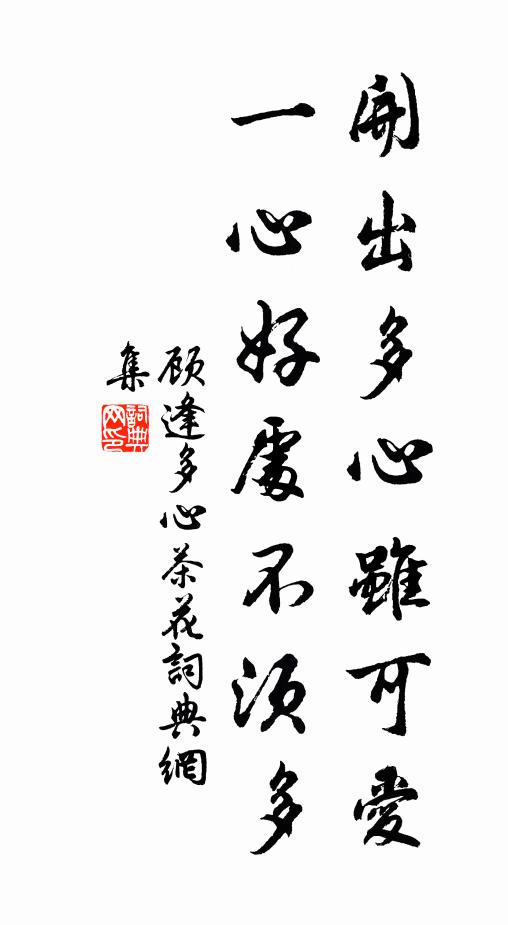 開出多心雖可愛
一心好處不須多
顾逢多心茶花詞典網
集
詞典
网印